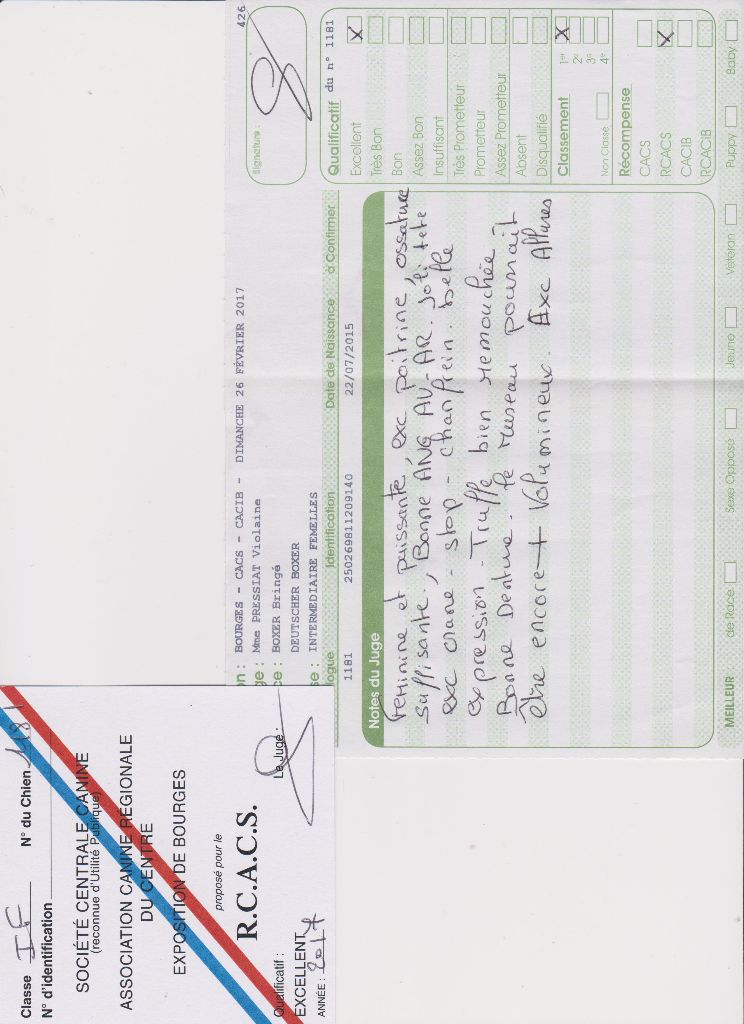 426
Signature :
on : BOURGES - CACS - CACIB - DIMANCHE 26 FÉVRIER 2017
ge : Mme PRESSIAT Violaine
ce : BOXER Bringé
DEUTSCHER BOXER
se : INTERMEDIAIRE FEMELLES
logue Identification Date de Naissance à Confirmer
1181 250269811209140 22/07/2015
Notes du Juge
Féminine et puissante, exc poitrine, ossature
suffisante, Bonne ANG AV-AR. Joli tete
exc crane - stop - chanfrein. belle
expression - Truffe bien remouchée -
Bonne Denture. le museau pourrait
être encore + Volumineux. Exc Allures
Qualificatif du n° 1181
Excellent X
Très Bon
Bon
Assez Bon
Insuffisant
Très Prometteur
Prometteur
Assez Prometteur
Absent
Disqualifié
Classement
1er X
2e
3e
4e
Non Classé
Récompense
CACS
RCACS X
CACIB
RCACIB
MEILLEUR de Race Sexe Opposé Jeune Vétéran Puppy Baby
Classe IF N° du Chien 1181
N° d'identification
SOCIÉTÉ CENTRALE CANINE
(reconnue d'Utilité Publique)
ASSOCIATION CANINE RÉGIONALE
DU CENTRE
EXPOSITION DE BOURGES
proposé pour le
R.C.A.C.S.
Qualificatif : Le Juge :
EXCELLENT
ANNÉE : 2017